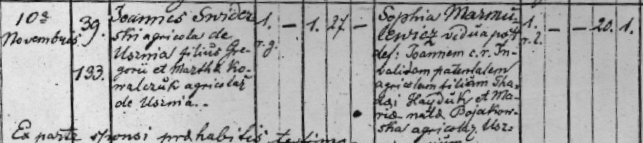 10a
Novembris
39.
133.
Joannes Swider
ski agricola de
Usznia filius Gre
gorii et Marthæ Ko
walczuk agricolæ
de Usznia.
1. — 1. 27 —
r.g.
Sophia Marmu
lewicz vidua post
def: Joannem c.r. In
validum patentalem
agricolam filiam Tha
dæi Hayduk et Ma
riæ nata Bojakow
ska agricolæ Usz
1. — — 20. 1.
r.l.
Ex parte sponsi præhabitis